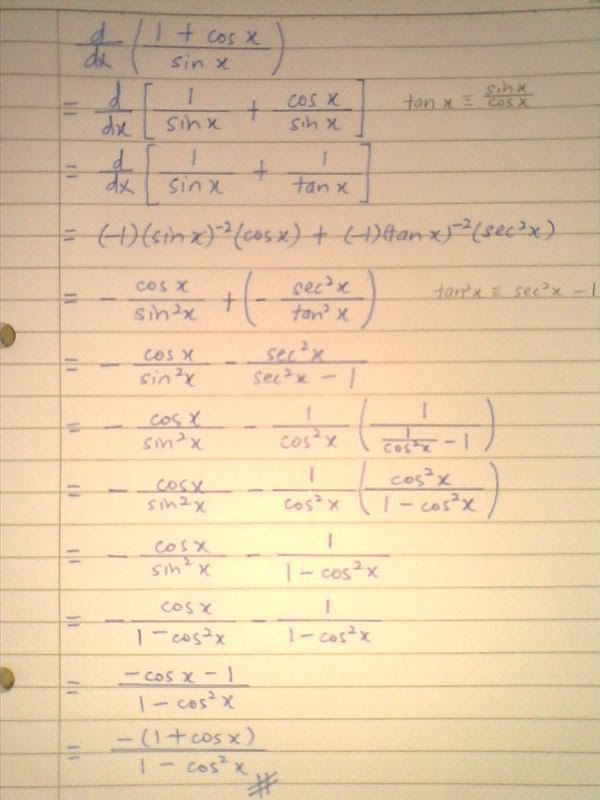 d/dx ( (1 + cos x) / sin x )
= d/dx [ 1/sin x + cos x/sin x ]   tan x ≡ sin x/cos x
= d/dx [ 1/sin x + 1/tan x ]
= (-1)(sin x)⁻²(cos x) + (-1)(tan x)⁻²(sec²x)
= - cos x/sin²x + ( - sec²x/tan²x )   tan²x ≡ sec²x - 1
= - cos x/sin²x - sec²x/(sec²x - 1)
= - cos x/sin²x - 1/cos²x ( 1/( 1/cos²x - 1 ) )
= - cos x/sin²x - 1/cos²x ( cos²x/(1 - cos²x) )
= - cos x/sin²x - 1/(1 - cos²x)
= - cos x/(1 - cos²x) - 1/(1 - cos²x)
= (-cos x - 1)/(1 - cos²x)
= -(1 + cos x)/(1 - cos²x)